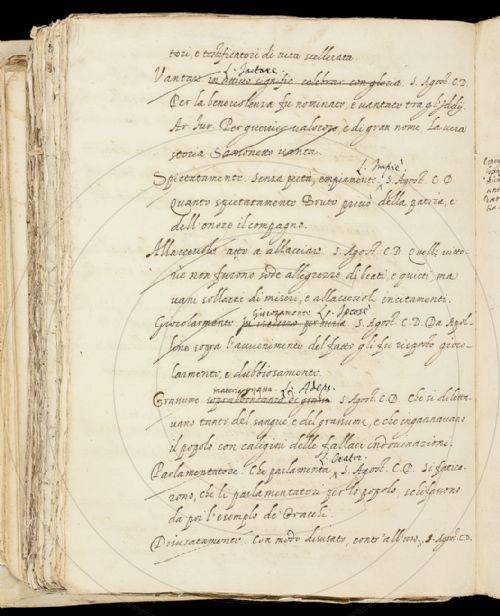 tori, e testificatori di vita scellerata.
L. Jactare
Vantare in attivo signific. celebrar con gloria. S. Agost. C.D.
Per la benevolenza fu nominato, e vantato tra gl'Idoly.
Ar. fur. Per guerrier valoroso, e di gran nome, La vera
storia Sansonetto vanta.
L. Impiè
Spietatamente. Senza pietà, empiamente. S. Agost. C.D.
quanto spietatamente Bruto privò della patria, e
dell'onore il compagno.
Allacevole atto a allacciare. S. Agost. C.D. e quelle vitto-
rie non furono sode allegrezze di beati, e quieti, ma
vani sollazzi di miseri, e allaccevoli incitamenti.
Giocosamente L. Jocosè
Giocolarmente S. Agost. C.D. Da Apol-
line sopra l'avvenimento del fatto gli fu risposto gioco-
larmente, e dubbiosamente.
materia grassa. L. Adeps.
Grassume soprabbondanza di grasso. S. Agost. C.D. Che si diletta-
vano tanto del sangue, e del grassume, e che ingannavano
il popolo con caligini delle fallaci indovinazioni.
L. Orator.
Parlamentatore. Che parlamenta. S. Agost. C.D. Si fatico-
rono, che li parlamentatori per lo popolo, se li furono
da poi l'esemplo de' Gracchi.
Disusatamente. Con modo disusato, contr'all'uso. S. Agost. C.D.